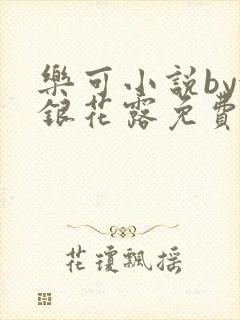 樂可小說by
銀花露免費
花瓊飄搖